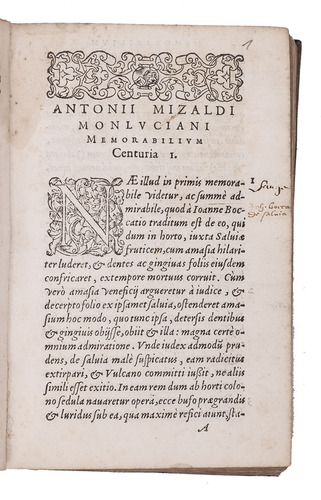 1
ANTONII MIZALDI
MONLVCIANI
MEMORABILIVM
Centuria 1.
NÆ illud in primis memora-
bile videtur, ac summè ad-
mirabile, quod à Ioanne Boc-
catio traditum est de eo, qui
dum in horto, iuxta Saluiæ
fruticem, cum amasia hilari-
ter luderet, & dentes ac gingiuas foliis eiusdem
confricaret, extempore mortuus corruit. Cùm
verò amasia veneficij argueretur à iudice, &
decerpto folio ex ipsamet saluia, ostenderet ama-
sium hoc modo, quo tunc ipsa, detersis dentibus
& gingiuis obijsse, obiit & illa: magna certè o-
mnium admiratione. Vnde iudex admodũ pru-
dens, de saluia malè suspicatus, eam radicitus
extirpari, & Vulcano committi iußit, ne aliis
simili esset exitio. In eam rem dum ab horti colo-
no sedula nauaretur operã, ecce bufo prægrandis
& luridus sub ea, qua maximè refici aiunt, sta-
A
1